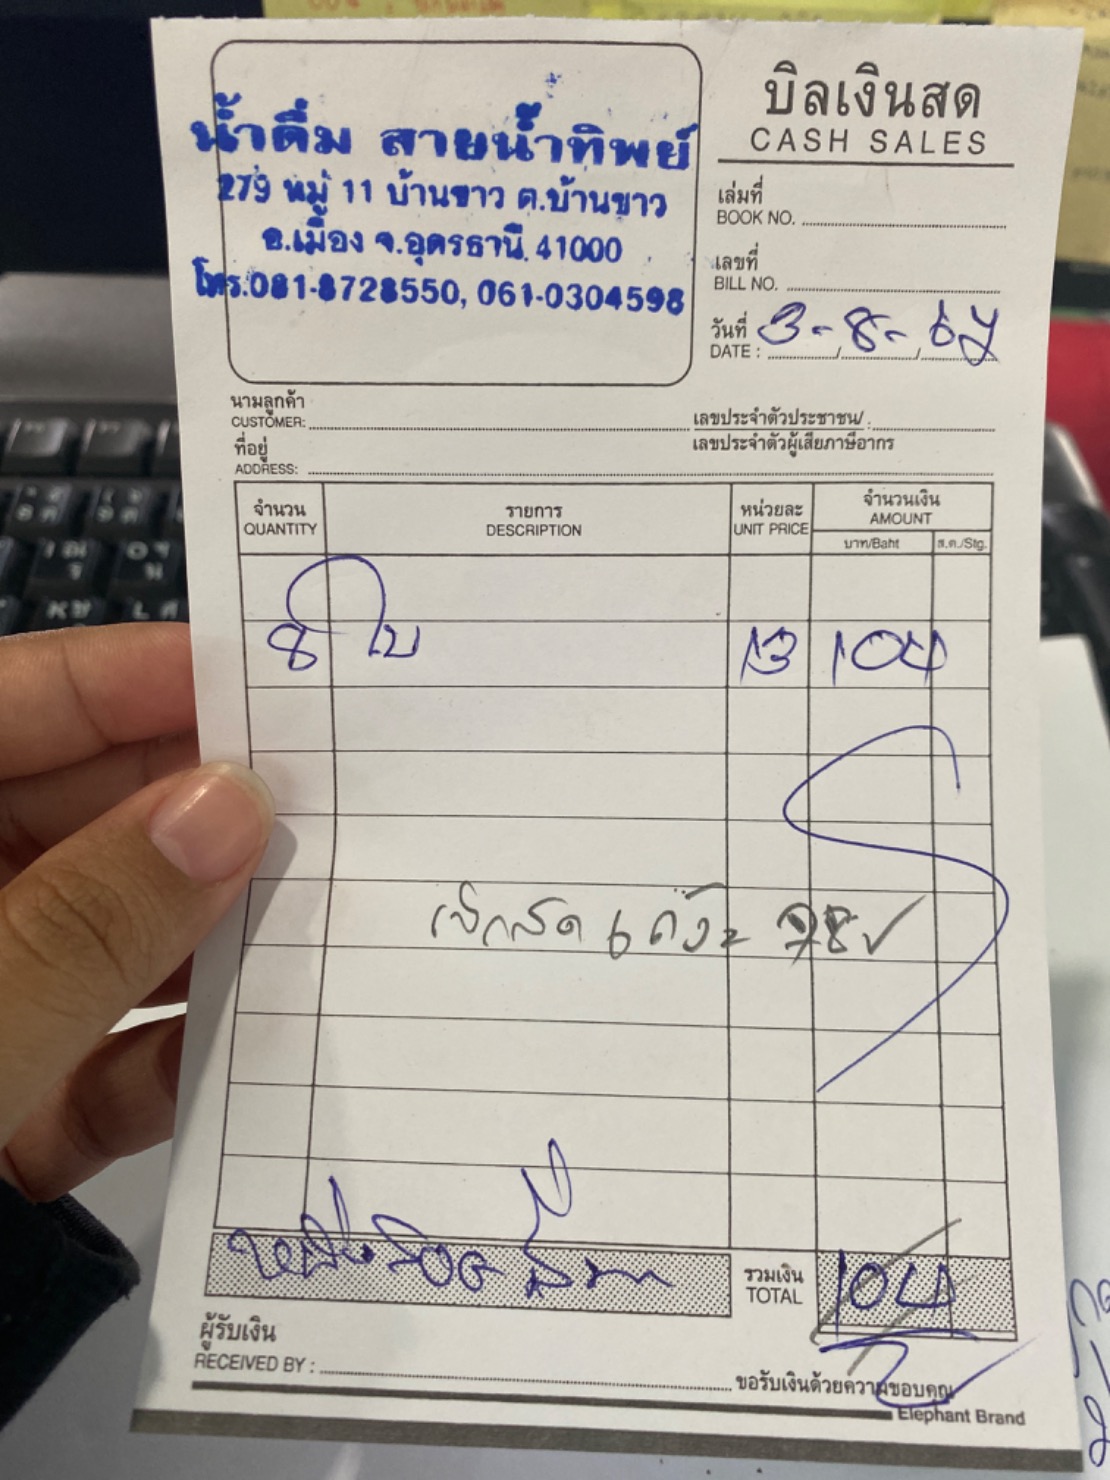 น้ำดื่ม สายน้ำทิพย์
279 หมู่ 11 บ้านขาว ต.บ้านขาว
อ.เมือง จ.อุดรธานี 41000
โทร.081-8728550, 061-0304598
บิลเงินสด
CASH SALES
เล่มที่
BOOK NO.
เลขที่
BILL NO.
วันที่ 3-8-67
DATE :
นามลูกค้า
CUSTOMER:
เลขประจำตัวประชาชน/ :
เลขประจำตัวผู้เสียภาษีอากร
ที่อยู่
ADDRESS:
จำนวน รายการ หน่วยละ จำนวนเงิน
QUANTITY DESCRIPTION UNIT PRICE AMOUNT
บาท/Baht ส.ต./Stg.
8 ใบ 13 104
6 ถัง = 78
รวมเงิน 104
TOTAL
ผู้รับเงิน
RECEIVED BY :
ขอรับเงินด้วยความขอบคุณ
Elephant Brand